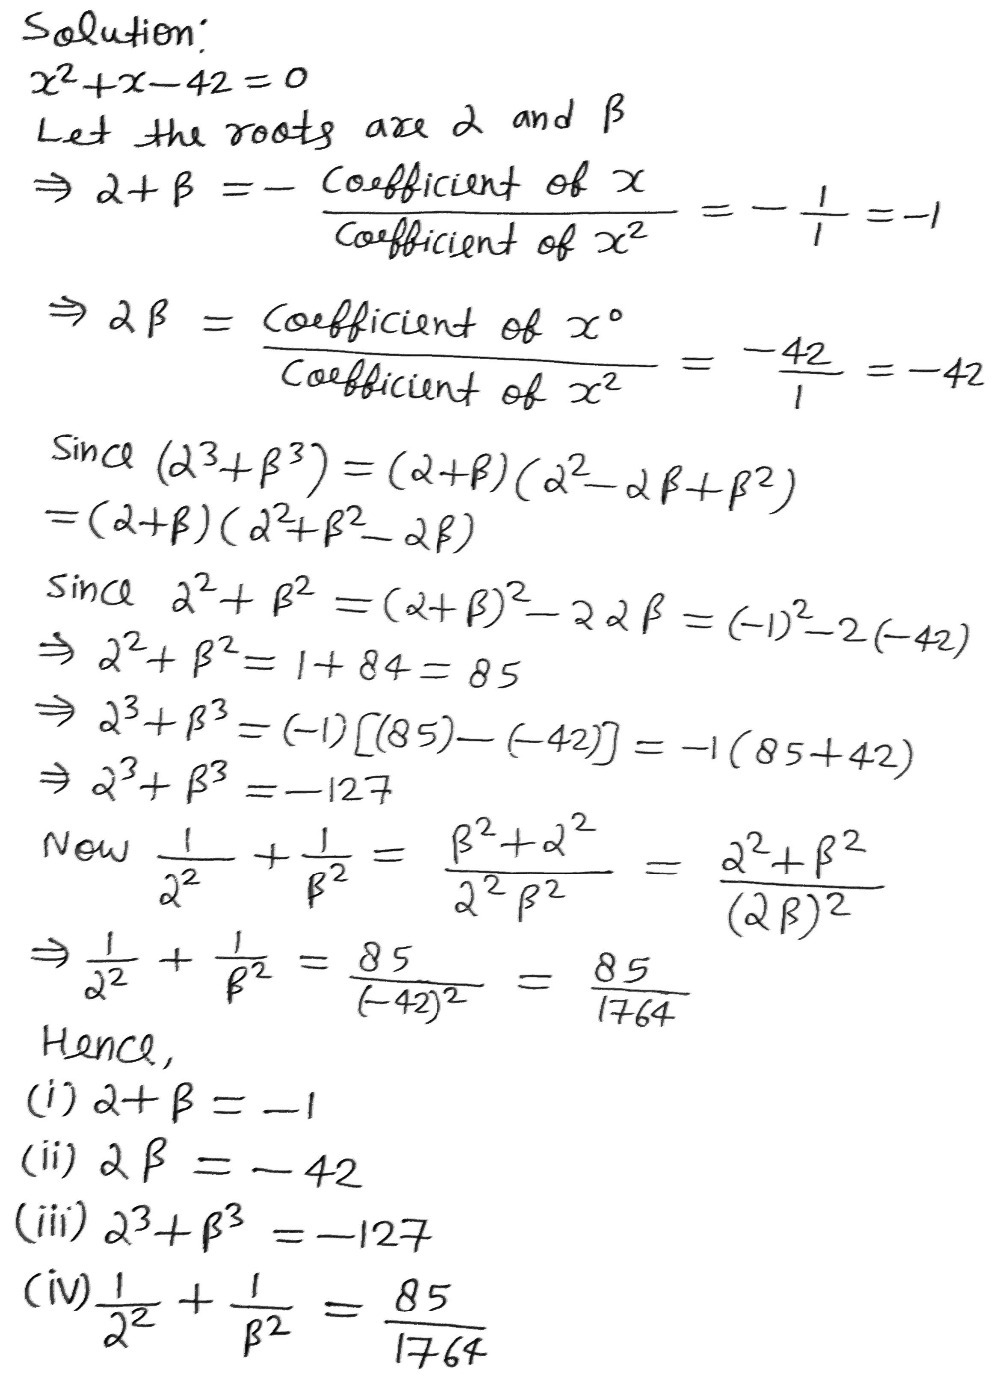 Solution:
x²+x-42=0
Let the roots are α and β
⇒ α+β = - Coefficient of x / Coefficient of x² = - 1/1 = -1
⇒ αβ = Coefficient of x⁰ / Coefficient of x² = -42/1 = -42
Since (α³+β³) = (α+β)(α²-αβ+β²)
=(α+β)(α²+β²-αβ)
Since α²+β² = (α+β)²-2αβ = (-1)²-2(-42)
⇒ α²+β² = 1+84 = 85
⇒ α³+β³ = (-1)[(85)-(-42)] = -1(85+42)
⇒ α³+β³ = -127
Now 1/α² + 1/β² = β²+α² / α²β² = α²+β² / (αβ)²
⇒ 1/α² + 1/β² = 85/(-42)² = 85/1764
Hence,
(i) α+β = -1
(ii) αβ = -42
(iii) α³+β³ = -127
(iv) 1/α² + 1/β² = 85/1764